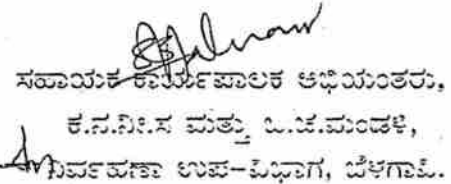 ಸಹಾಯಕ ಕಾರ್ಯಪಾಲಕ ಅಭಿಯಂತರು,
ಕ.ನ.ನೀ.ಸ ಮತ್ತು ಒ.ಚ.ಮಂಡಳಿ,
ನಿರ್ವಹಣಾ ಉಪ-ವಿಭಾಗ, ಬೆಳಗಾವಿ.